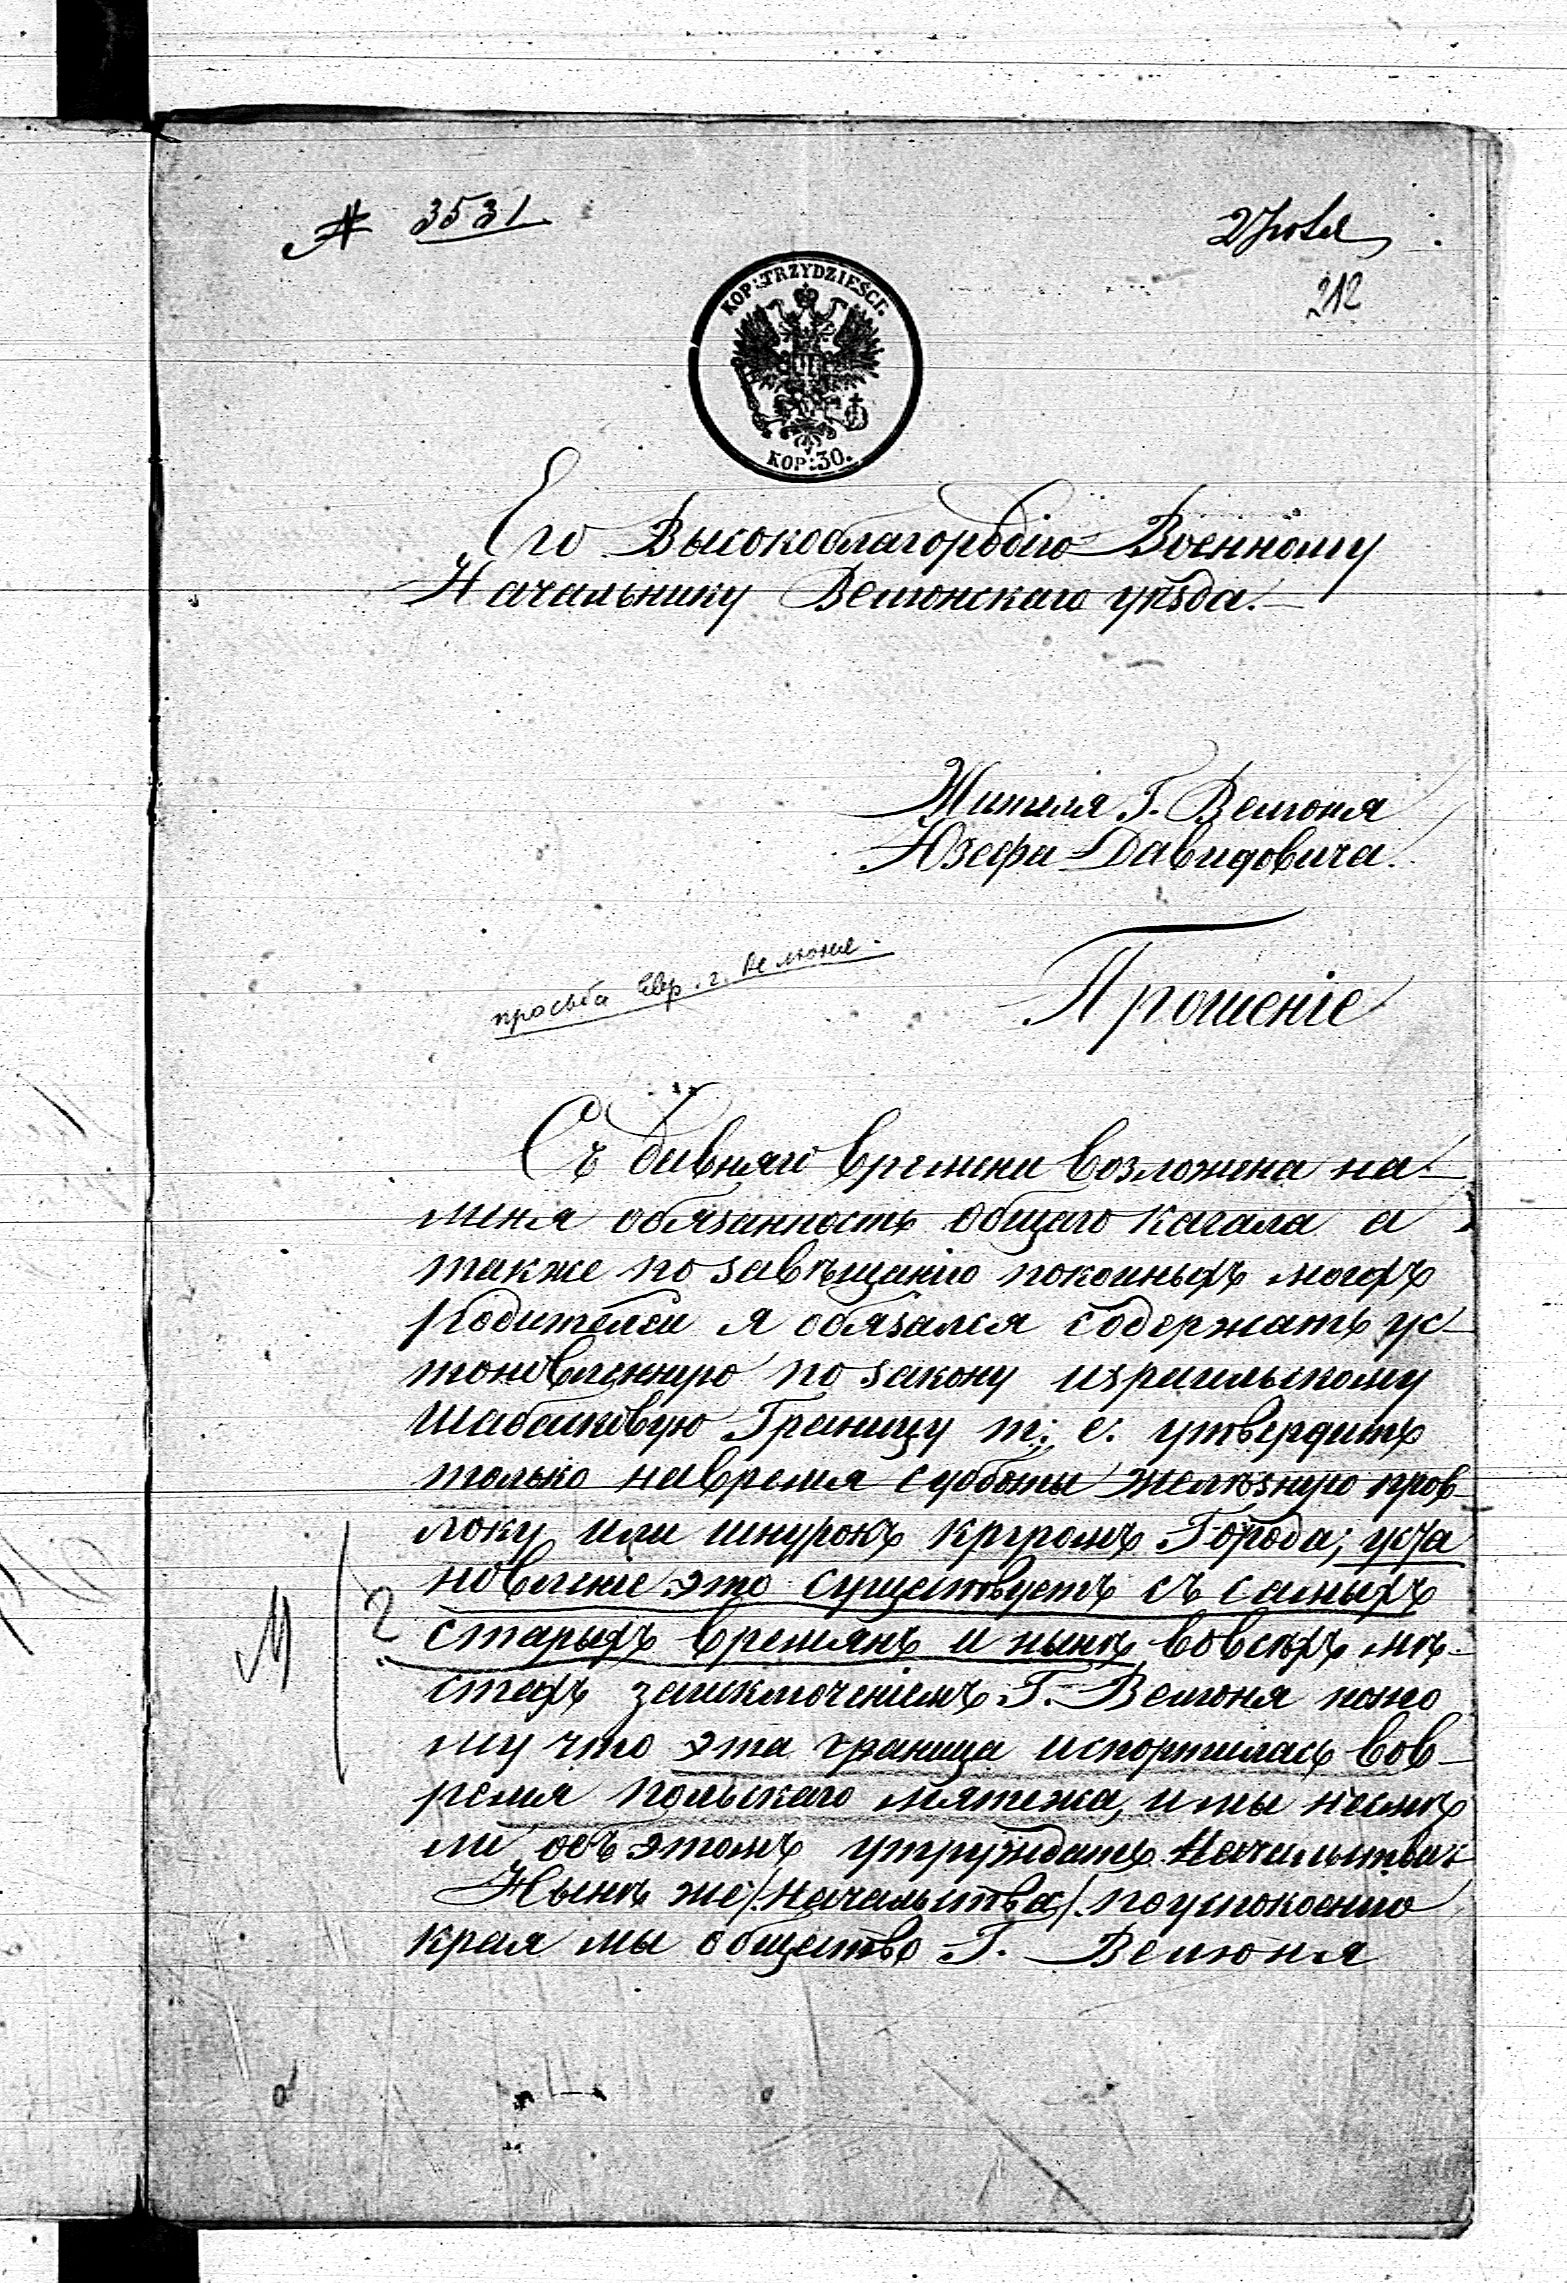 № 3531
2 Іюля
212
KOP: TRZYDZIEŚCI.
KOP: 30.
Его Высокоблагородію Военному
Начальнику Велюнскаго уѣзда.
Жителя Г. Велюня
Юзефа Давидовича.
просьба Евр. г. Велюня.
Прошеніе
Съ давняго времени возложена на
меня обязанность общаго кагала а
также по завѣщанію покойныхъ моихъ
родителей я обязался содержать ус-
тоновленную по закону израильскому
Шабасковую Границу т: е: утвердить
только на время субботы желѣзную пров-
локу или шнурокъ кругомъ Города; уста
новленіе это существуетъ съ самыхъ
старыхъ времянъ и нынѣ вовсѣхъ мѣ-
стахъ заисключеніемъ Г. Велюня пото
му что эта граница испортилась вов-
ремя польскаго мятежа, и мы несмѣ
ли объ этомъ утруждать Начальства
Нынѣ же /:Начальства:/ по успокоенію
края мы общество Г. Велюня